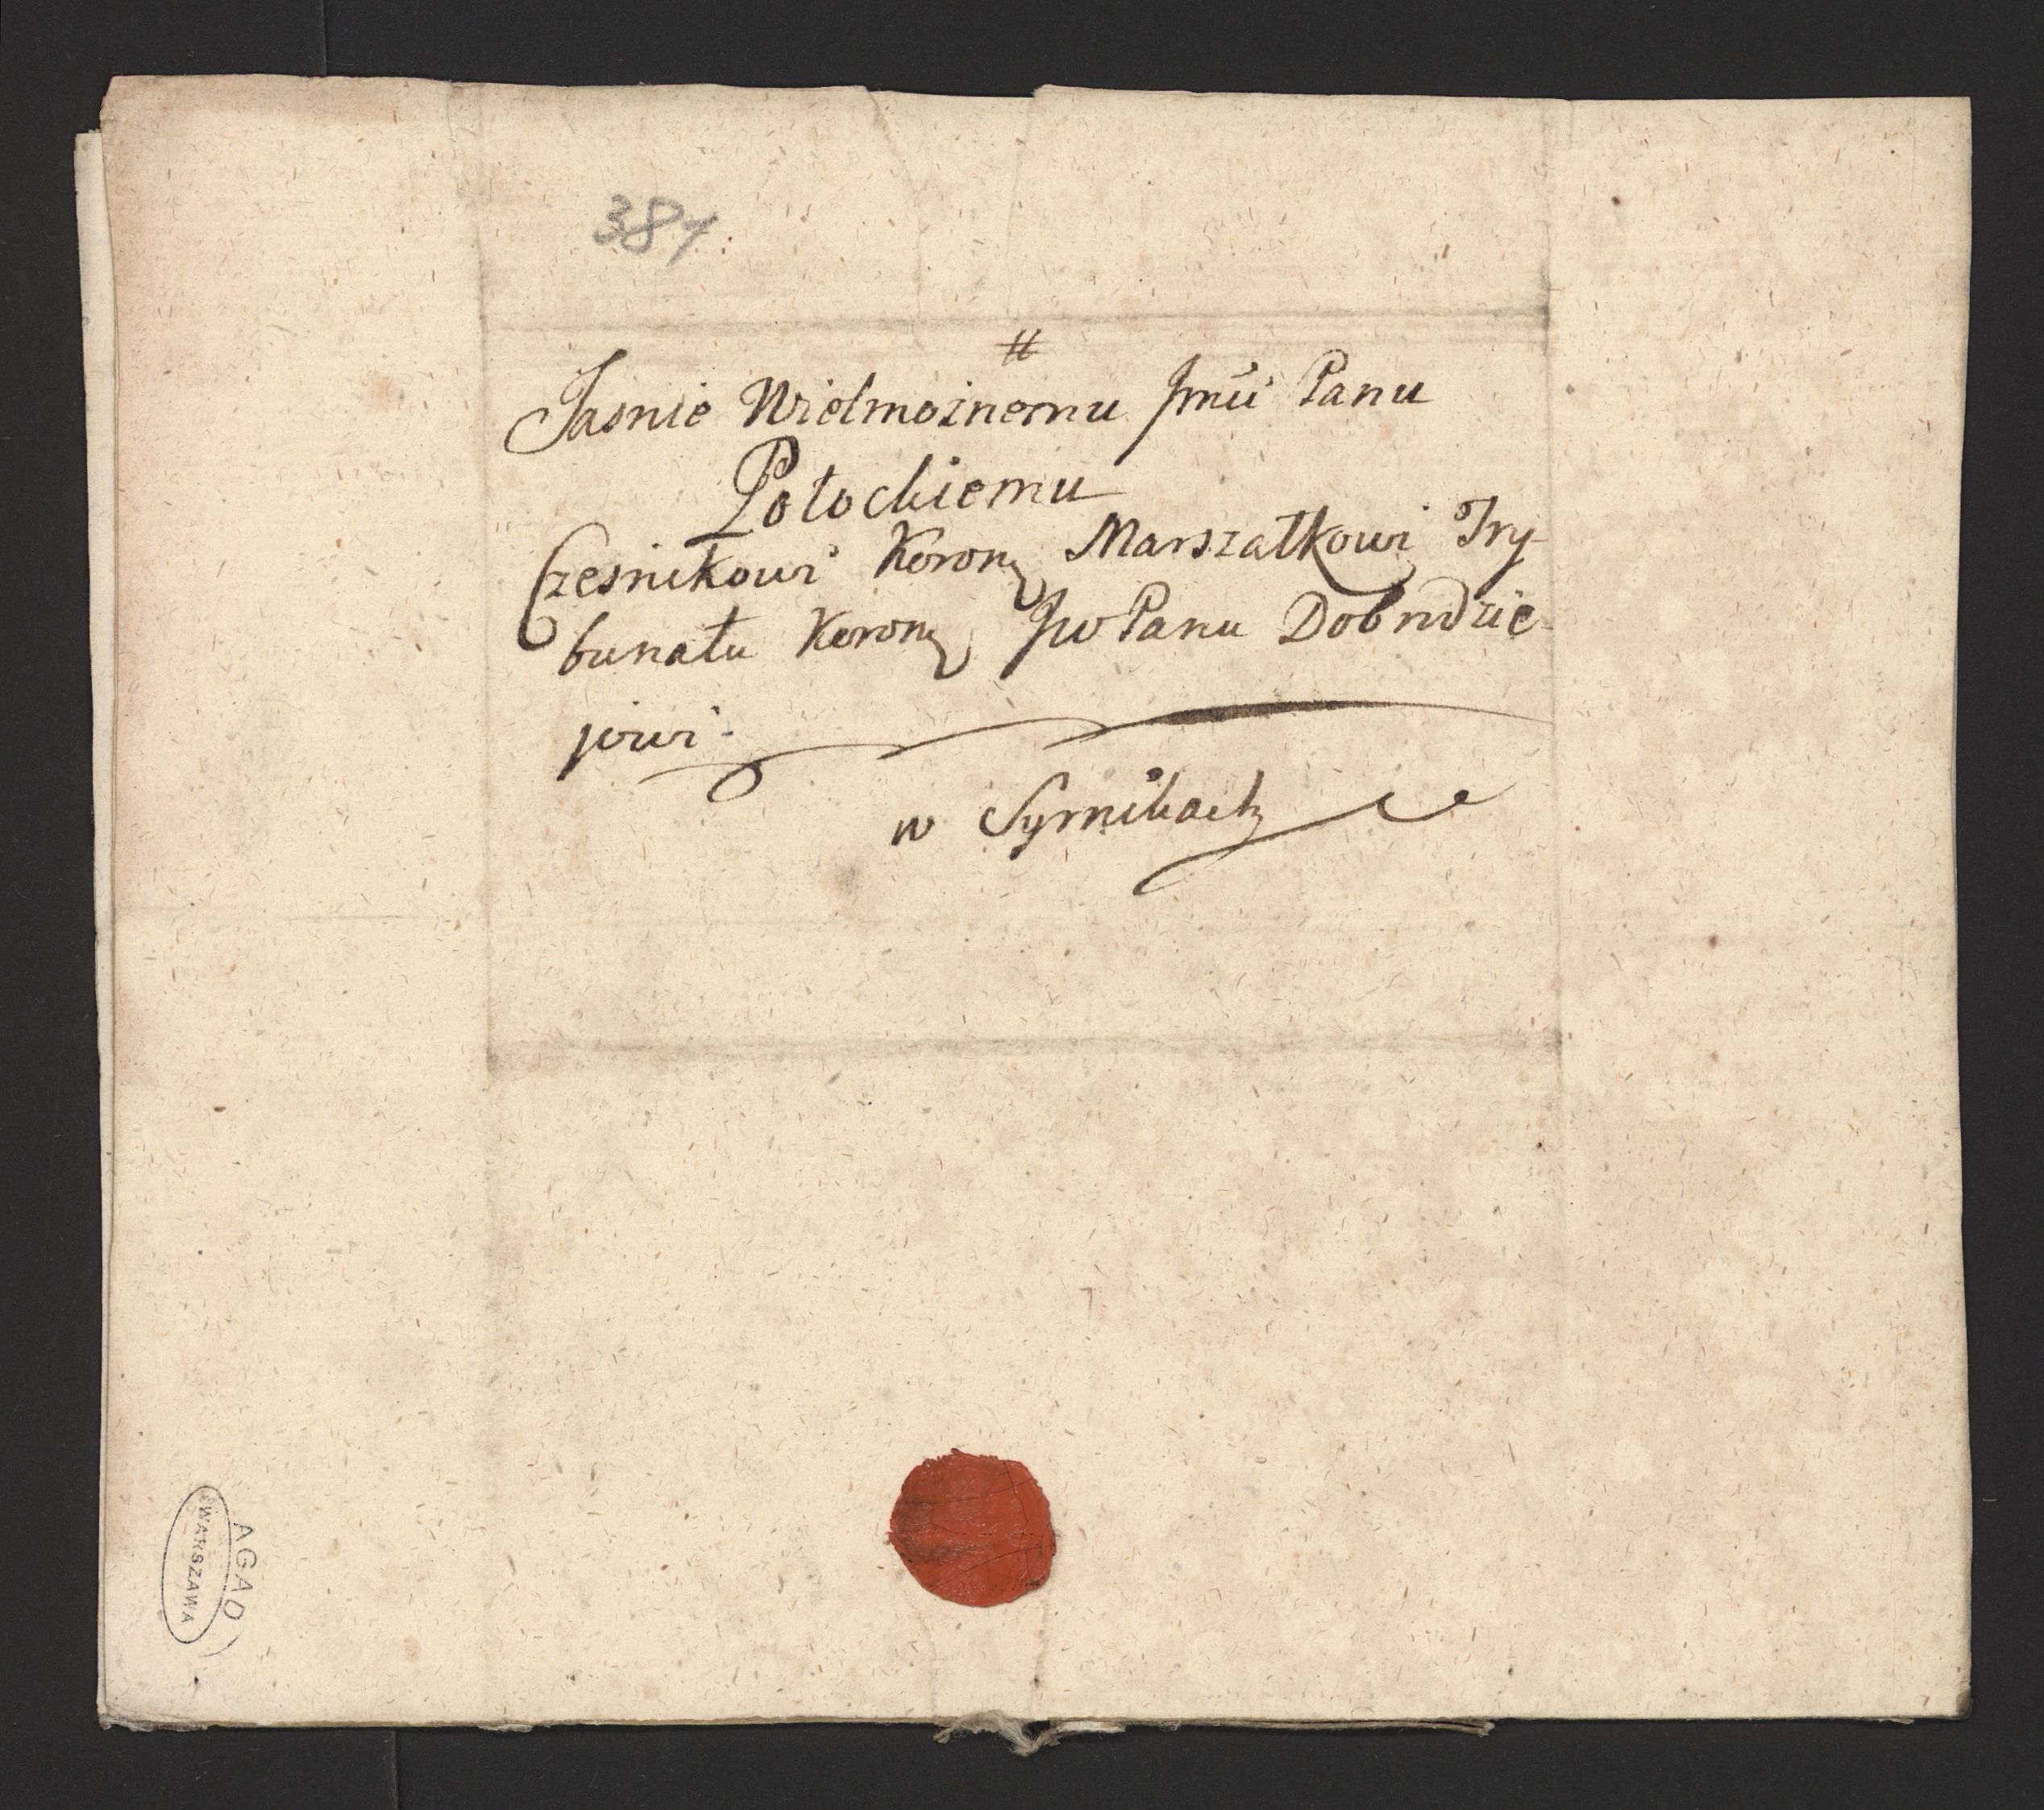 387.
#
Jasnie Wielmoznemu Jmći Panu
Potockiemu
Czesnikowi Koronͤ Marszałkowi Try-
bunału Koronͤ Jw Panu Dobrodzie-
jowi.
w Syrnikach
AGAD
WARSZAWA